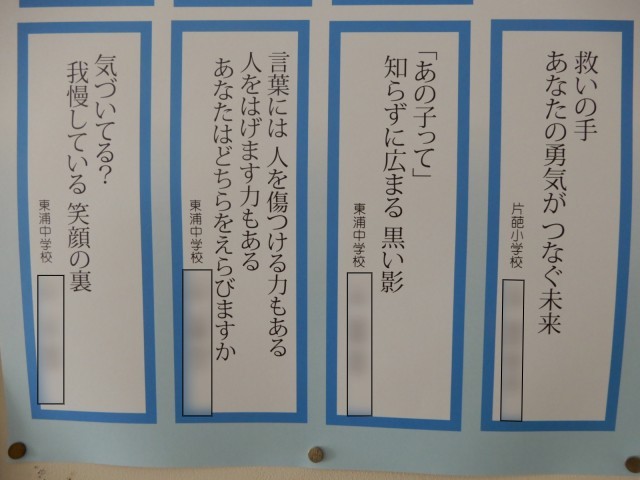 救いの手
あなたの勇気が つなぐ未来
片葩小学校
「あの子って」
知らずに広まる 黒い影
東浦中学校
言葉には 人を傷つける力もある
人をはげます力もある
あなたはどちらをえらびますか
東浦中学校
気づいてる?
我慢している 笑顔の裏
東浦中学校